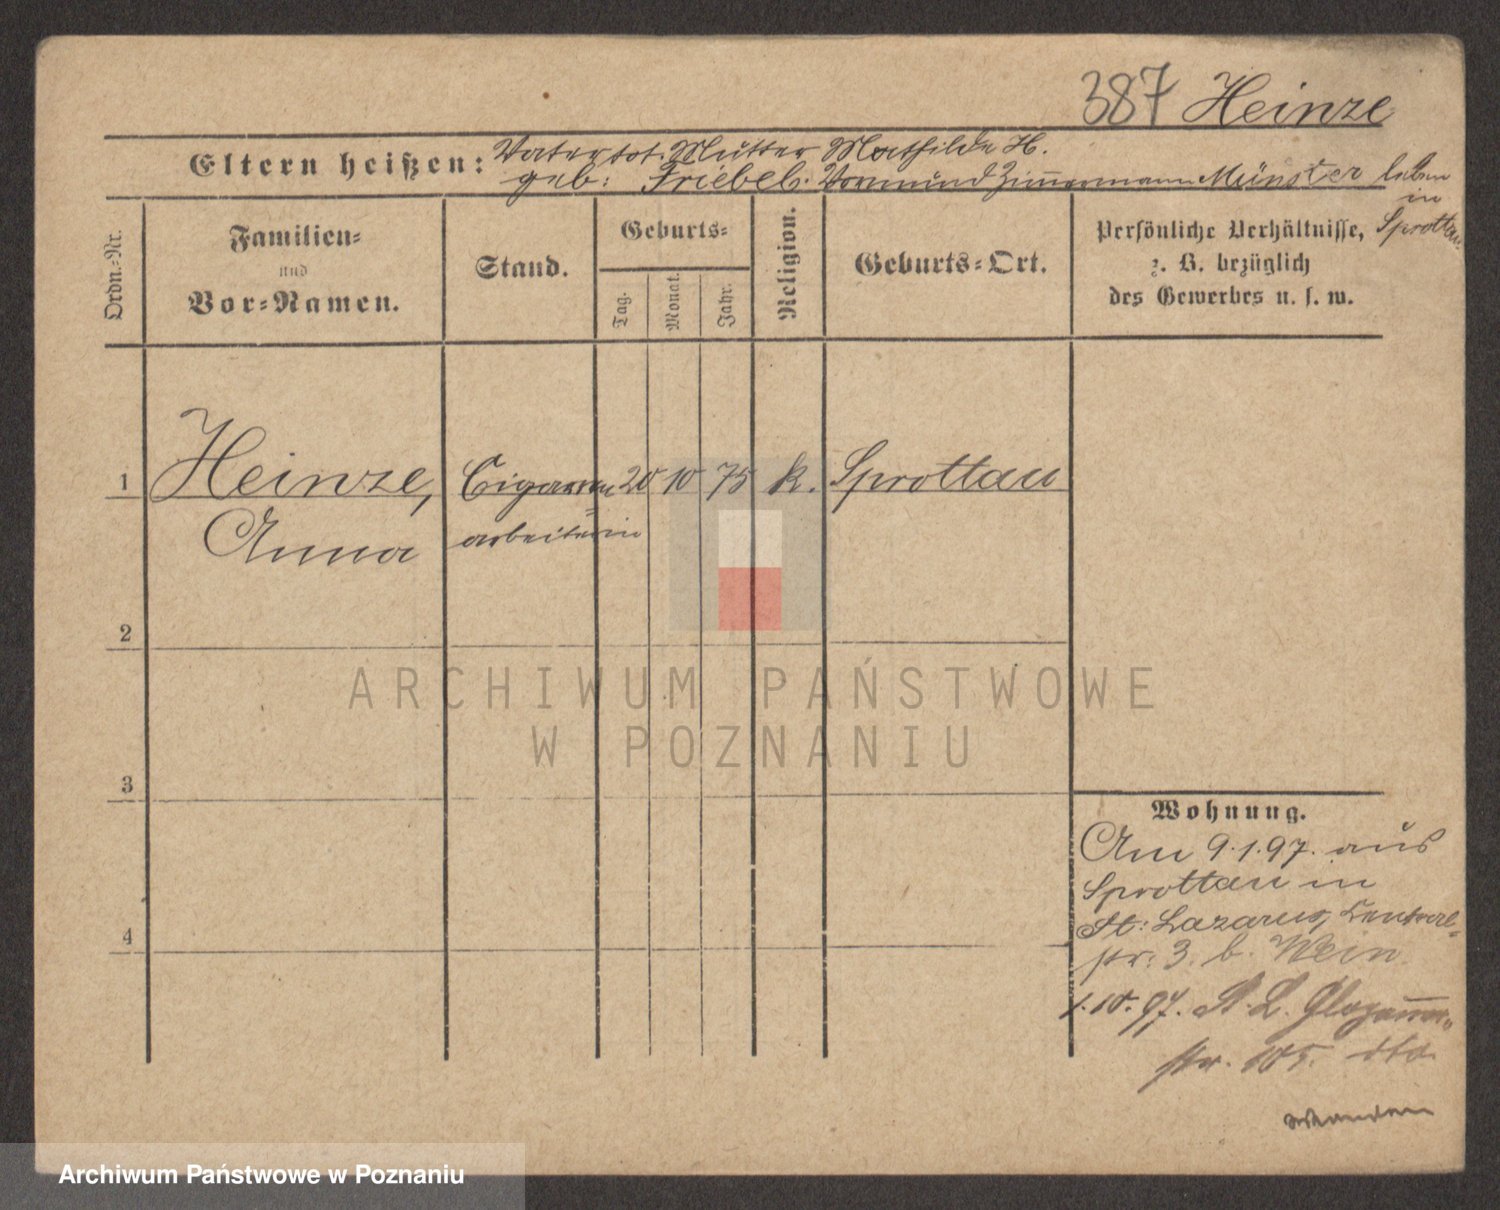 387 Heinze
Eltern heißen: Vater tot. Mutter Mathilde H.
geb: Friebel. Vormund Zimmermann Münster leben
in
Sprottau
Ordn.-Nr.
Familien-
und
Vor-Namen.
Stand.
Geburts-
Tag.
Monat.
Jahr.
Religion.
Geburts-Ort.
Persönliche Verhältnisse,
z. B. bezüglich
des Gewerbes u. s. w.
1 Heinze, Cigarren 20 10 75 k. Sprottau
Anna arbeiterin
2
ARCHIWUM PAŃSTWOWE
W POZNANIU
3
Wohnung.
Am 9.1.97. aus
Sprottau in
4 St: Lazarus, Central-
str. 3. b. Wein
1.10.97. St. L. Glogauer-
str. 105. dto.
Archiwum Państwowe w Poznaniu